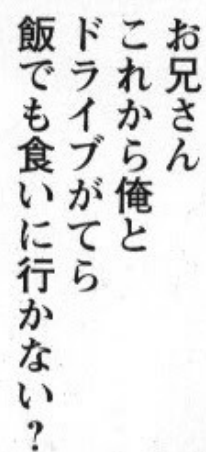 お兄さん
これから俺と
ドライブがてら
飯でも食いに行かない？